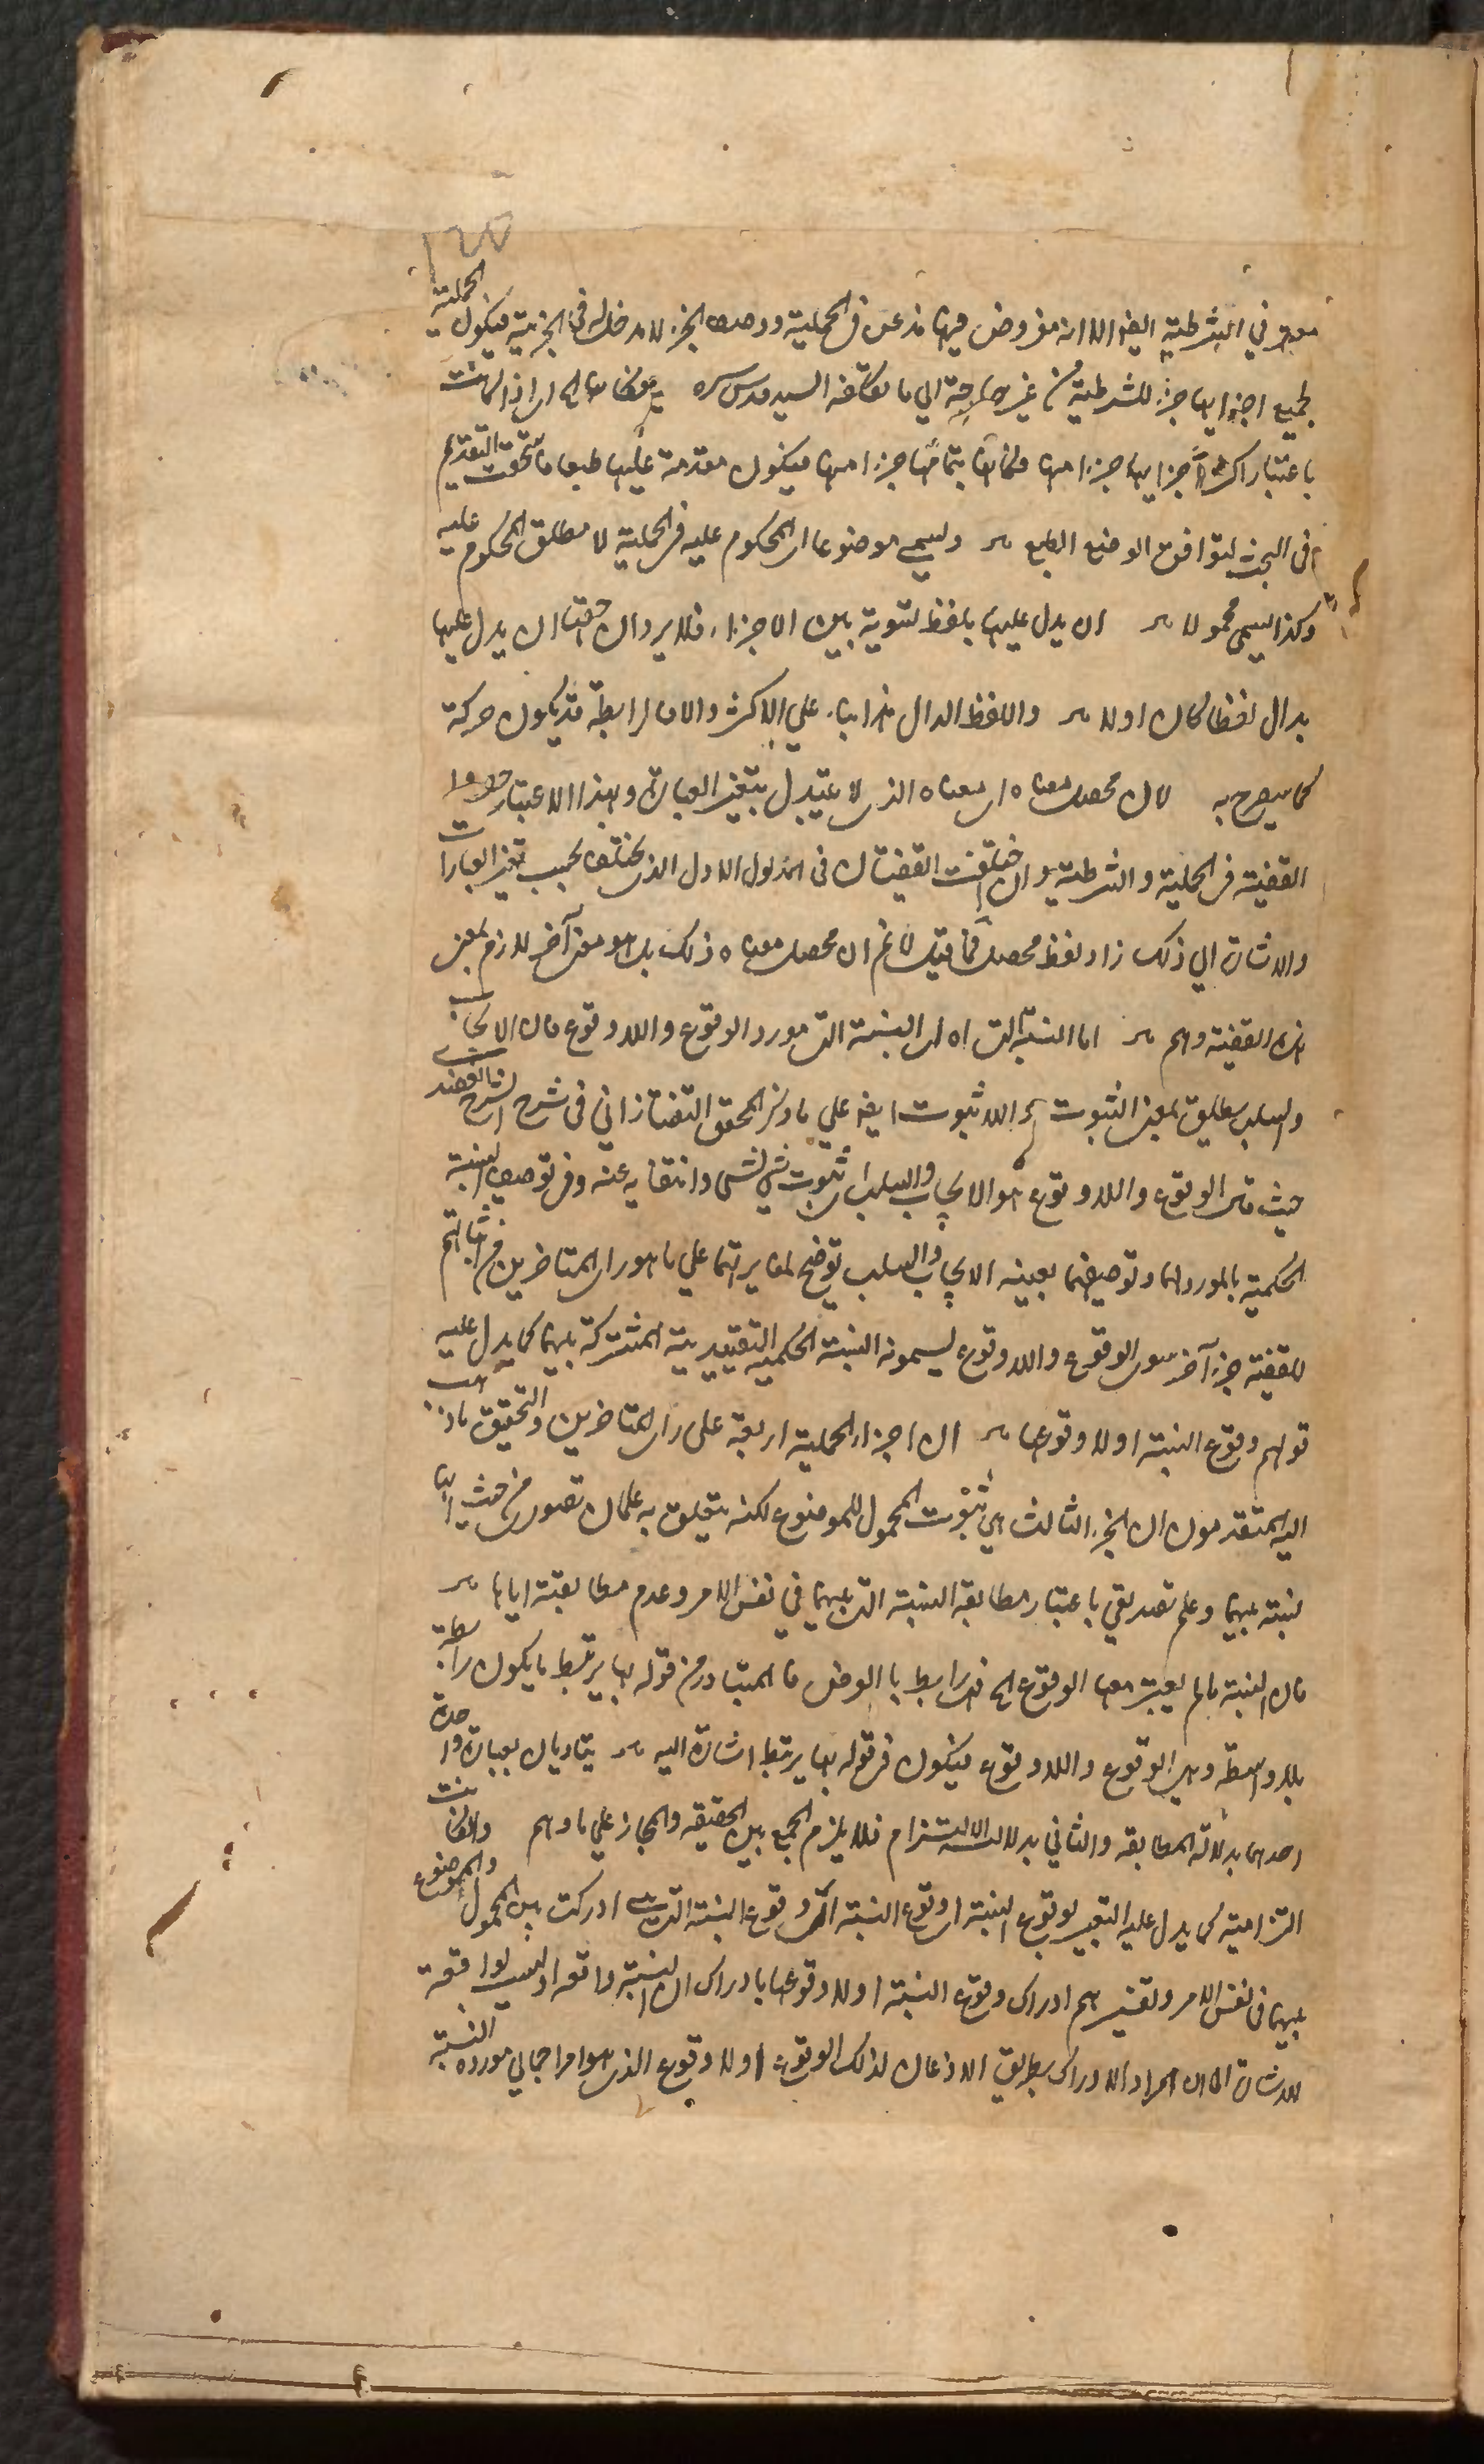 معتبر في الشرطية ايضا الا انه مفروض فيها مذعن في الحملية ووصف الجزء لا مدخل له في الجزئية فيكون الحملية
لجميع اجزايها جزء للشرطية من غير حاجة الي ما تكلفه السيد قدس سره فكانها الخ اي اذا كانت
باعتبار اكثر اجزايها جزءا منها فكانها بتمامها جزءا منها فيكون مقدمة عليها طبعا فاستحقت التقديم
في البحث ليتوافق الوضع الطبع ويسمى موضوعا اي المحكوم عليه في الحملية لا مطلق المحكوم عليه
وكذا يسمى محمولا ان يدل عليها بلفظ لتسوية بين الاجزاء فلا يرد ان حقها ان يدل عليها
بدال لفظا كان اولا واللفظ الدال هذا بناء علي الاكثر والا فالرابطة قد يكون حركة
كما يصرح به لان محصل معناه اي معناه الذي لا يتبدل بتغير العبارة وبهذا الاعتبار حصروا
القضية في الحملية والشرطية وان اختلفت القضيتان في المدلول الاول الذي يختلف بحسب تغير العبارات
والاشارة الي ذلك زاد لفظ محصل فما قيل لا نم ان محصل معناه ذلك بل هو معنى آخر لازم لمعنى
هذه القضية وهم اما النسبة التي اه اي النسبة التي مورد الوقوع واللاوقوع فان الايجاب
والسلب يطلق لمعنى الثبوت واللاثبوت ايضا علي ما ذكر المحقق التفتازاني في شرح الشرح العضد
حيث قال الوقوع واللاوقوع هو الايجاب والسلب اي ثبوت شي لشي وانتفايه عنه وفي توصيف النسبة
الحكمية بالمورد لهما وتوصيفهما بعينه الايجاب والسلب توضيح لمغايرتهما علي ما هو راي المتاخرين من اثباتهم
للقضية جزء آخر سوى الوقوع واللاوقوع يسمونه النسبة الحكمية التقييدية المشتركة بينهما كما يدل عليه
قولهم وقوع النسبة اولا وقوعها ان اجزاء الحملية اربعة على راي المتاخرين والتحقيق ما ذهب
اليه المتقدمون ان الجزء الثالث هي ثبوت المحمول للموضوع لكنه يتعلق به علمان تصوري من حيث انها
نسبة بينهما وعلم تصديقي باعتبار مطابقة النسبة التي بينهما في نفس الامر وعدم مطابقته اياها
فان النسبة ما لم يعتبر معها الوقوع الخ فهي رابط با العرض فالمتبادر من قوله بها يرتبط ما يكون رابطة
بلا واسطة وهي الوقوع واللاوقوع فيكون في قوله بها يرتبط اشارة اليه يتاديان بعبارة واحدة
احدهما بدلالة المطابقة والثاني بدلالة الالتزام فلا يلزم الجمع بين الحقيقة والمجاز علي ما وهم وان كانت
التزامية كما يدل عليه التعبير بوقوع النسبة اي وقوع النسبة التي وقوع النسبة التي ادركت بين المحمول والموضوع
بينهما في نفس الامر وتفسيرهم ادراك وقوع النسبة اولا وقوعها بادراك ان النسبة واقعة او ليست بواقعة
للاشارة الى ان المراد الادراك بطريق الاذعان لذلك الوقوع اولا وقوع الذي هو امر اجمالي مورده النسبة